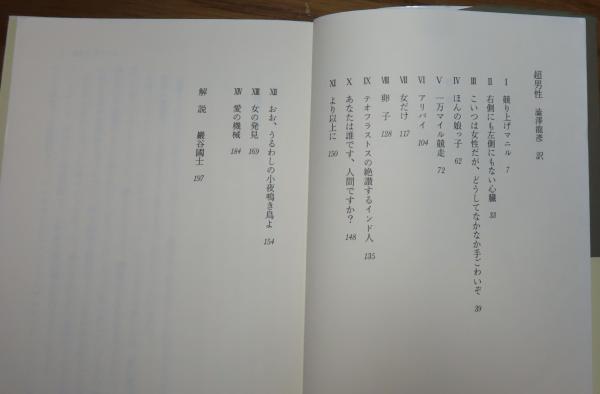 超男性 澁澤龍彦 訳
Ⅰ 競り上げマニル 7
Ⅱ 右側にも左側にもない心臓 33
Ⅲ こいつは女性だが、どうしてなかなか手ごわいぞ 39
Ⅳ ほんの娘っ子 62
Ⅴ 一万マイル競走 72
Ⅵ アリバイ 104
Ⅶ 女だけ 117
Ⅷ 卵子 128
Ⅸ テオフラストスの絶讃するインド人 135
Ⅹ あなたは誰です、人間ですか? 148
Ⅺ より以上に 150
Ⅻ おお、うるわしの小夜鳴き鳥よ 154
XIII 女の発見 169
XIV 愛の機械 184
解説 巖谷國士 197